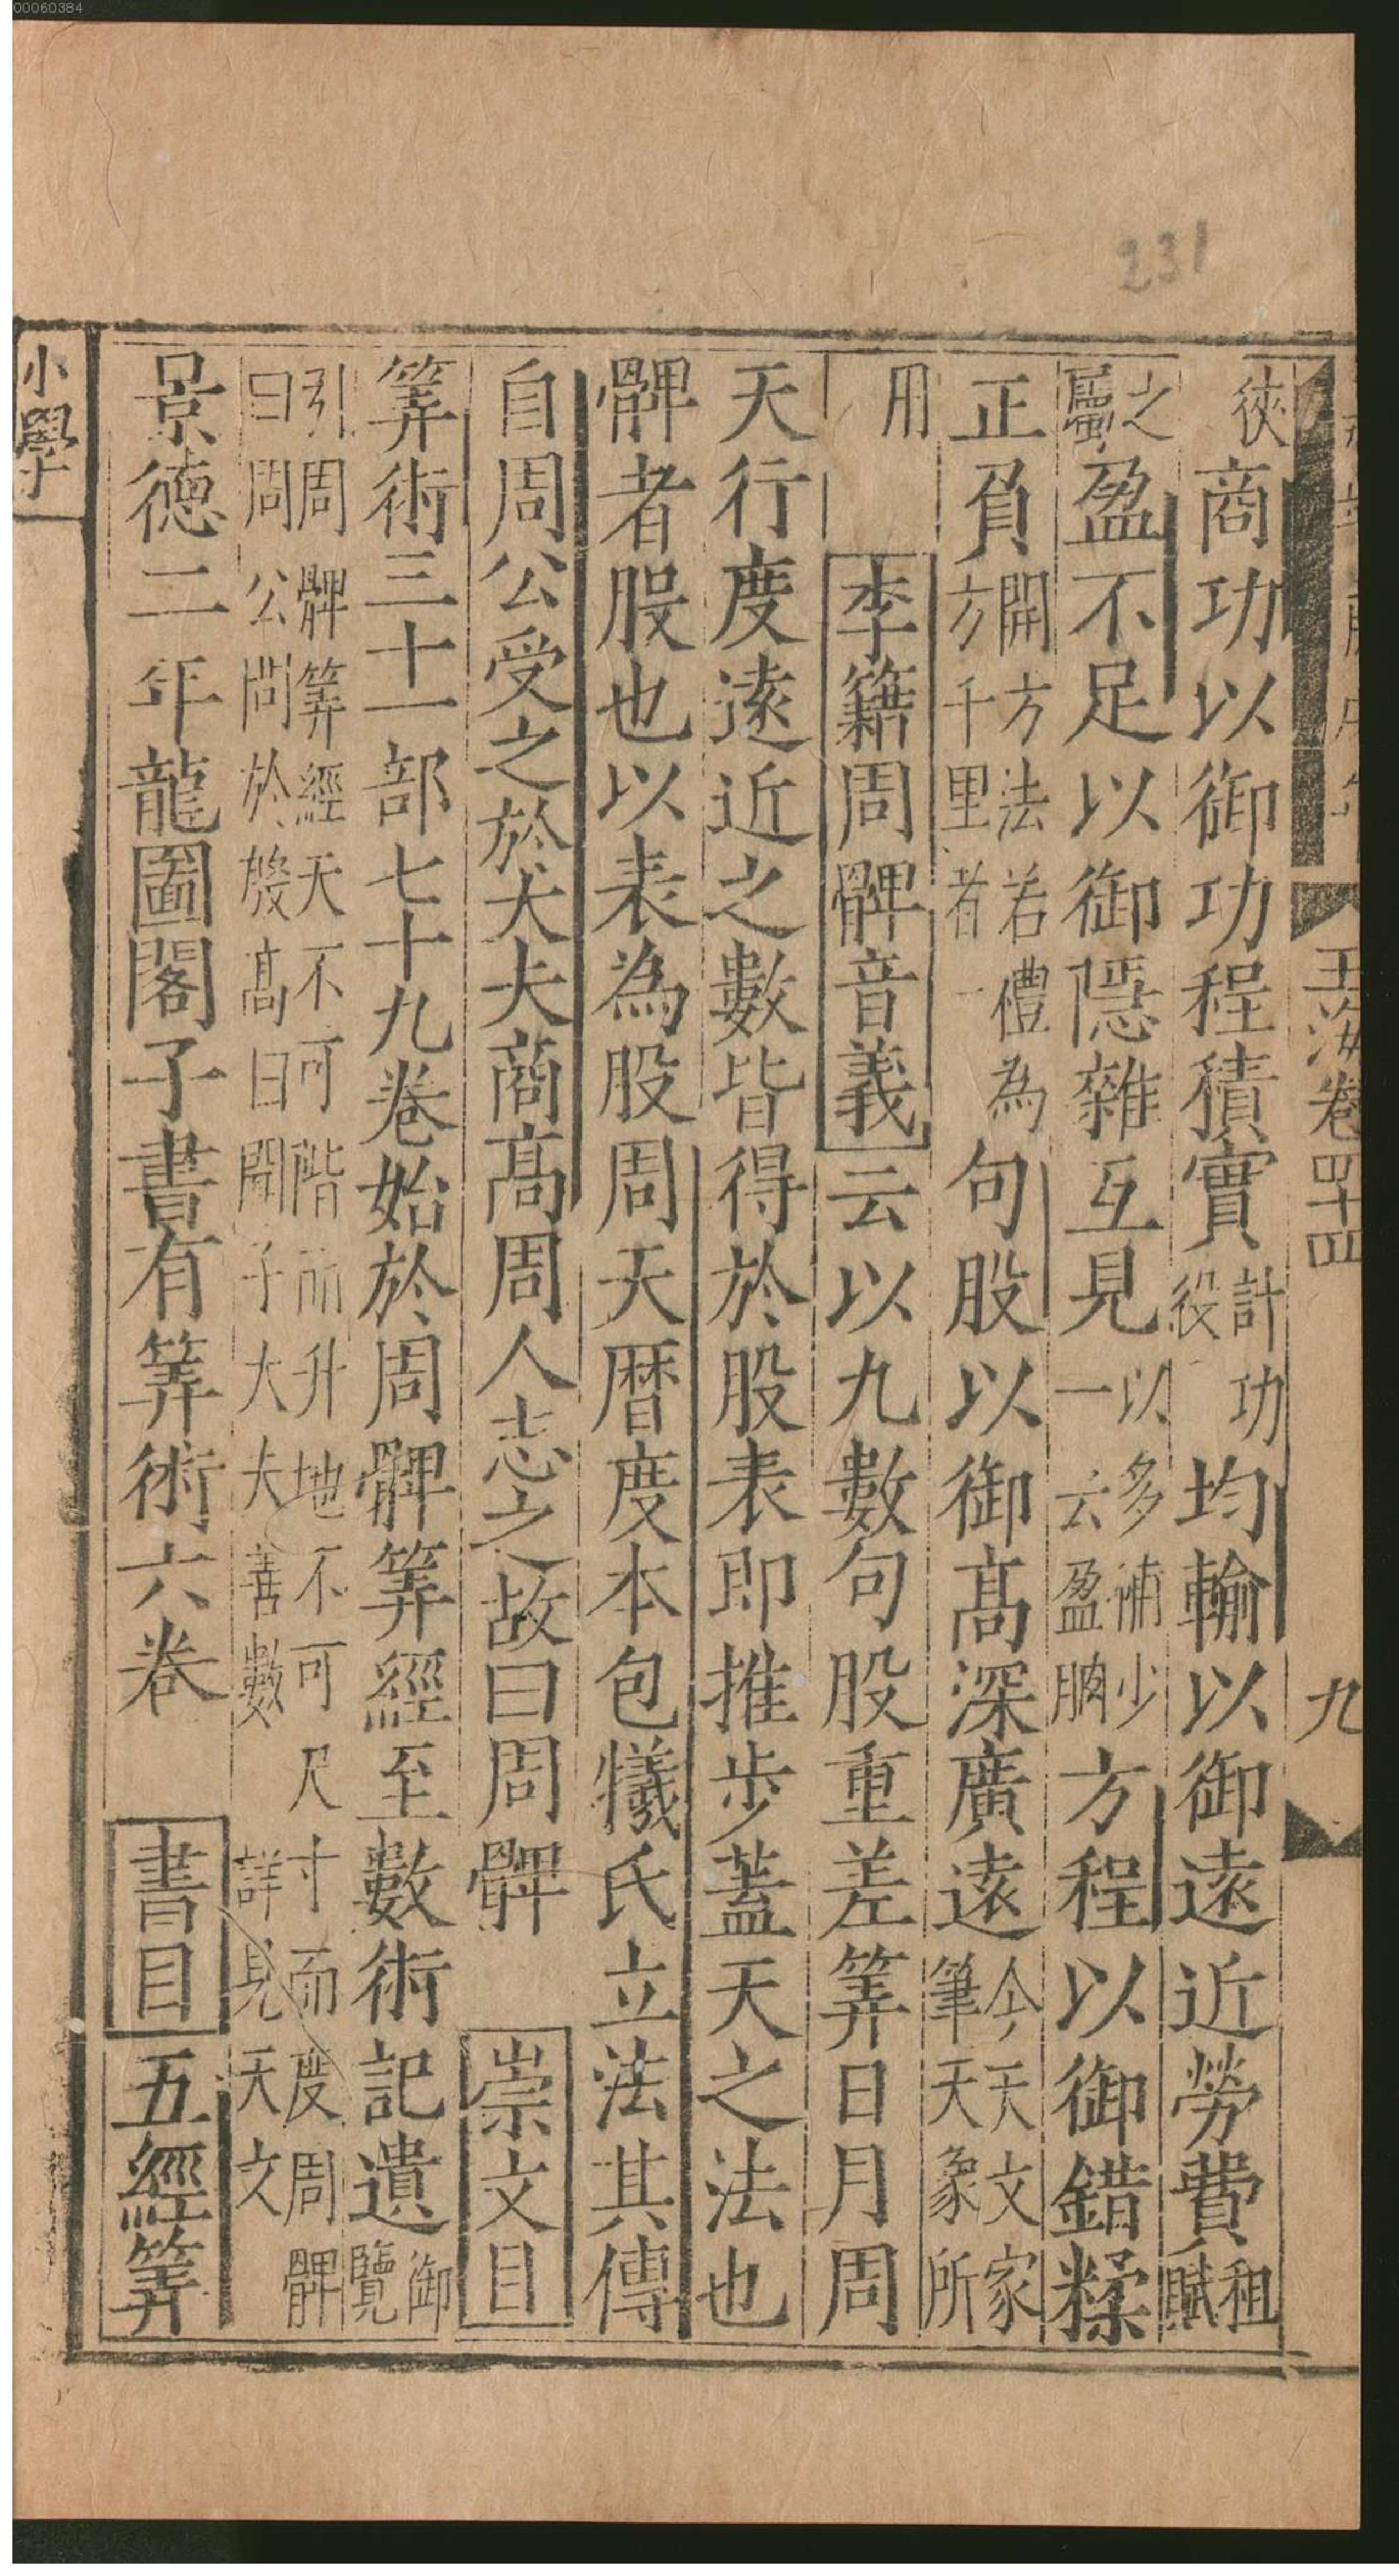 00060384
231
玉海卷四十四
九
狹商功以御功程積實計功役均輸以御遠近勞費租賦
之屬盈不足以御隱雜互見以多補少一云盈朒方程以御錯糅
正負開方法若禮為方千里者一句股以御高深廣遠今天文家筆天象所
用 李籍周髀音義云以九數句股重差筭日月周
天行度逺近之數皆得於股表即推步蓋天之法也
髀者股也以表為股周天曆度本包犧氏立法其傳
自周公受之於大夫商高周人志之故曰周髀 崇文目
筭術三十一部七十九卷始於周髀筭經至數術記遺御覽
引周髀筭經天不可階而升地不可尺寸而度周髀曰周公問於殷高曰聞子大夫善數 詳見天文
景德二年龍圖閣子書有筭術六卷 書目五經筭
小學